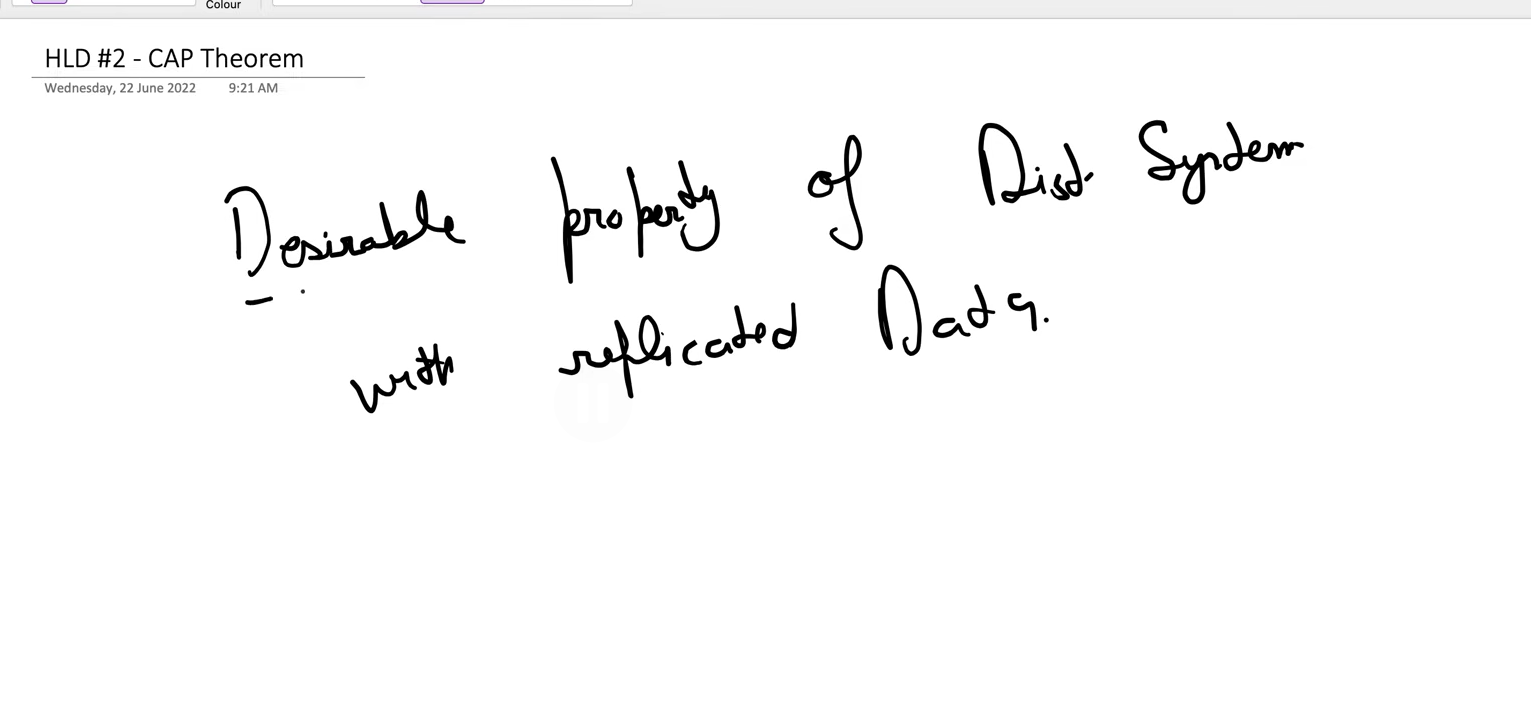 Colour
HLD #2 - CAP Theorem
Wednesday, 22 June 2022 9:21 AM
Desirable property of Dist. System
with replicated Data.